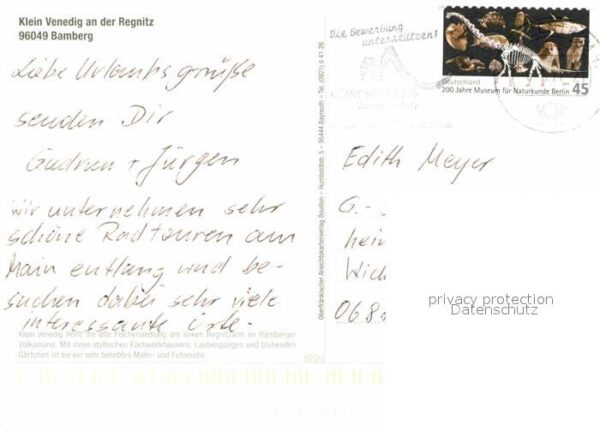 Klein Venedig an der Regnitz
96049 Bamberg
Liebe Urlaubsgrüße
senden Dir
Gudrun + Jürgen
wir unternehmen sehr
schöne Radtouren am
Main entlang und be-
suchen dabei sehr viele
interessante Orte.
Klein Venedig heißt die alte Fischersiedlung am linken Regnitzarm, im Bamberger
Volksmund. Mit ihren idyllischen Fachwerkhäusern, Laubengängen und blühenden
Gärtchen ist sie ein sehr beliebtes Maler- und Fotomotiv.
Oberfränkischer Ansichtskartenverlag Bouillon - Humboldtstr. 5 - 95444 Bayreuth - Tel. (0921) 6 41 26
Die Bewerbung
unterstützen!
MÜNCHEN 2018
Deutschland
200 Jahre Museum für Naturkunde Berlin 45
Edith Meyer
G.-
hein
Wick
068
privacy protection
Datenschutz